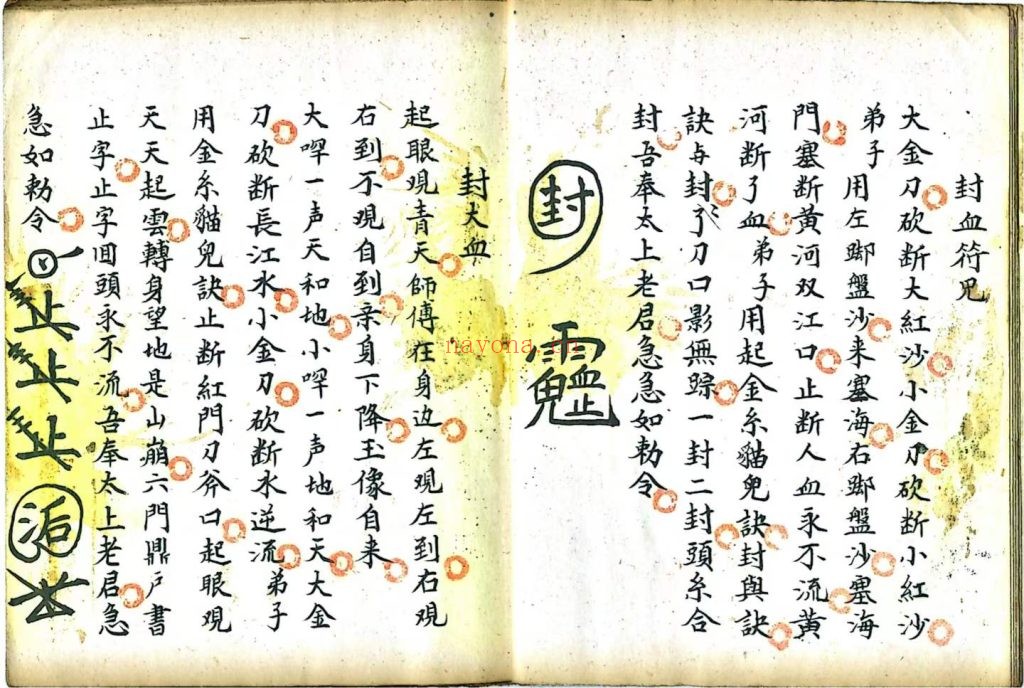 封血符咒
大金刀砍断大紅沙小金刀砍断小紅沙
弟子 用左脚盤沙来塞海右脚盤沙塞海
門塞断黄河双江口止断人血永不流黄
河断了血弟子用起金糸貓兒訣封與訣
訣与封了刀口影無踪一封二封頭糸合
封吾奉太上老君急急如勅令
封
封大血
起眼观青天師傅在身边左观左到右观
右到不观自到亲身下降玉像自来
大喥一声天和地小喥一声地和天大金
刀砍断長江水小金刀砍断水逆流弟子
用金糸貓兒訣止断紅門刀斧口起眼观
天天起雲轉身望地是山崩六門鼎戸書
止字止字回頭永不流吾奉太上老君急
急如勅令
止止止
nayona.cn